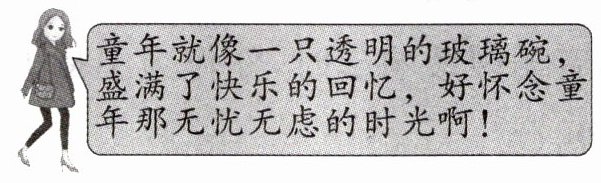 童年就像一只透明的玻璃碗，
盛满了快乐的回忆，好怀念童
年那无忧无虑的时光啊！